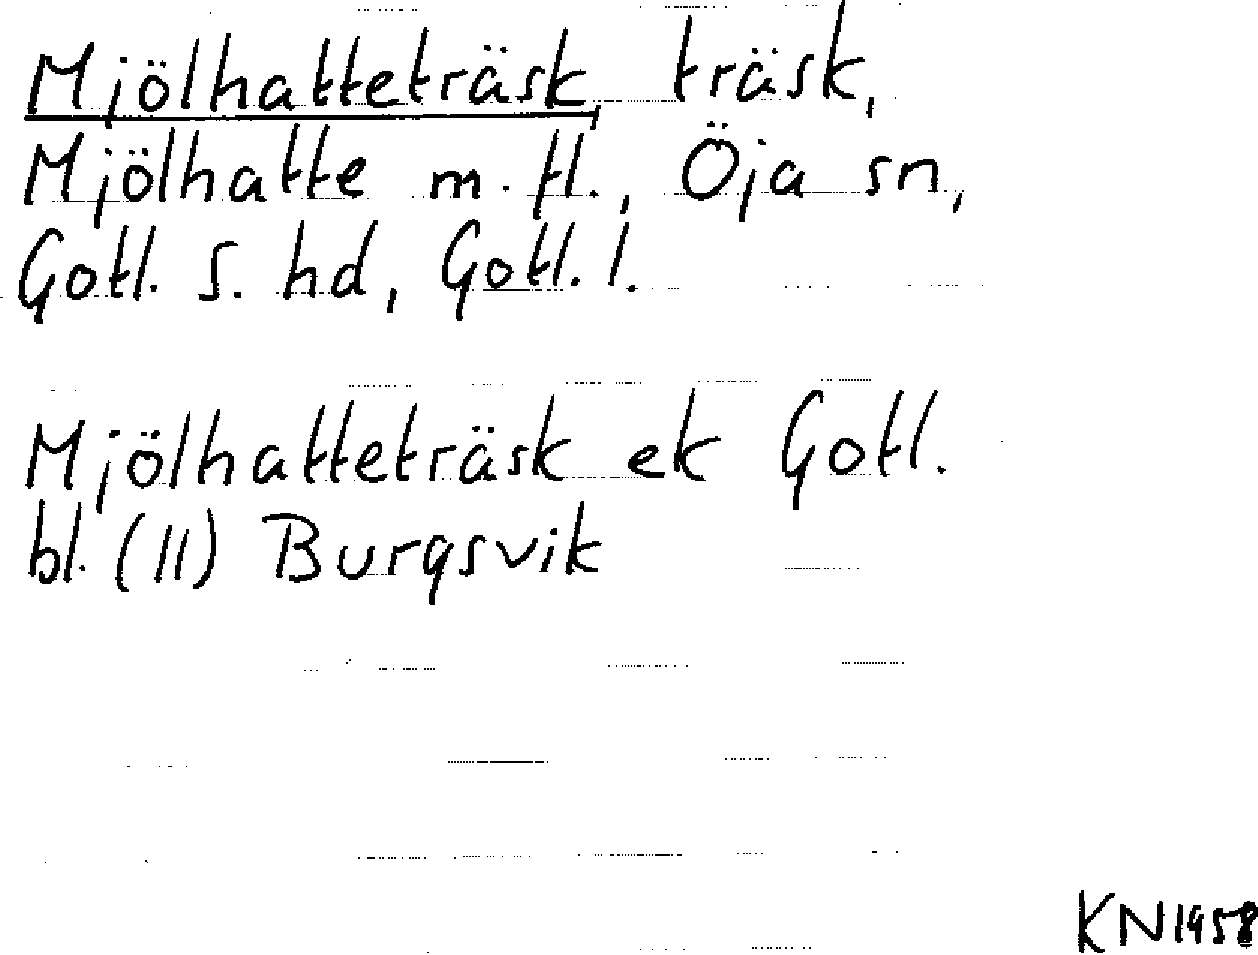 Mjölhatteträsk, träsk,
Mjölhatte m. fl., Öja sn,
Gotl. S. hd, Gotl. l.
Mjölhatteträsk ek Gotl.
bl. (11) Burgsvik
KN1958